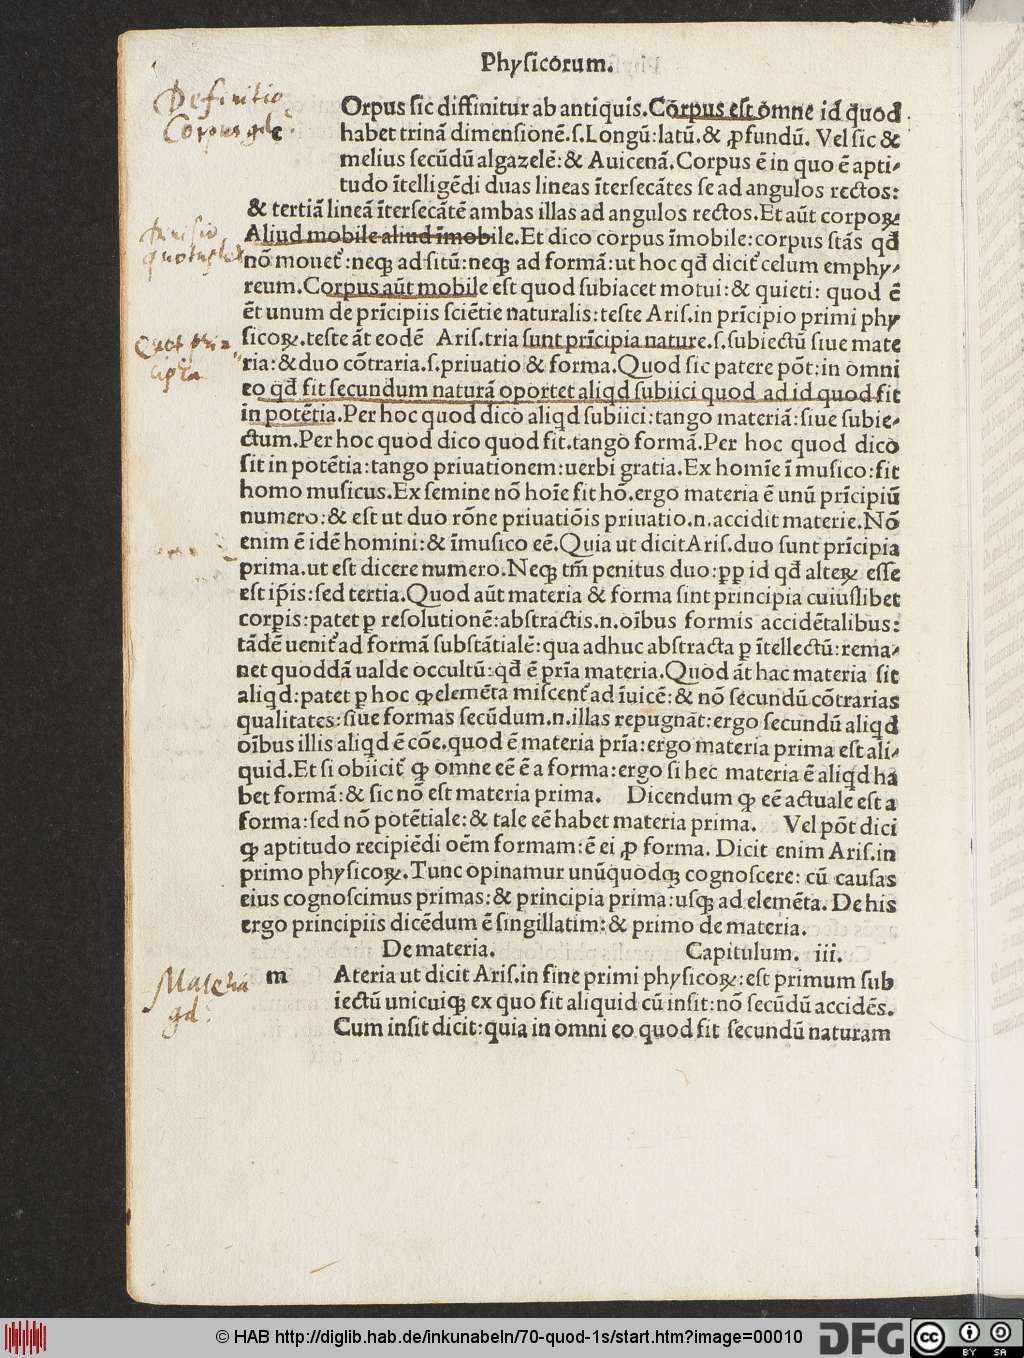 Phyſicorum.
Definitio
Corpus gd
c
Orpus ſic diffinitur ab antiquis. Cõrpus eſt õmne id quod
habet trinã dimenſionẽ.ſ.Longũ:latũ.& ꝓfundũ. Vel ſic &
melius ſecũdũ algazelẽ:& Auicenã.Corpus ẽ in quo ẽ apti⸗
tudo ĩtelligẽdi duas lineas ĩterſecãtes ſe ad angulos rectos:
& tertiã lineã ĩterſecãtẽ ambas illas ad angulos rectos.Et aũt corpoꝝ
Aliud mobile aliud ĩmobile.Et dico corpus ĩmobile:corpus ſtãs qđ
nõ mouet᷑:neqꝫ ad ſitũ:neqꝫ ad formã:ut hoc qđ dicit᷑ celum emphy⸗
reum.Corpus aũt mobile eſt quod ſubiacet motui:& quieti: quod ẽ
ẽt unum de prĩcipiis ſciẽtie naturalis:teſte Ariſ.in prĩcipio primi phy
ſicoꝝ.teſte ãt eodẽ Ariſ.tria ſunt prĩcipia nature.ſ.ſubiectũ ſiue mate
ria:& duo cõtraria.ſ.priuatio & forma.Quod ſic patere põt:in omni
eo qđ fit ſecundum naturã oportet aliqd ſubiici quod ad id quod fit
in potẽtia.Per hoc quod dico aliqd ſubiici:tango materiã:ſiue ſubie⸗
ctum.Per hoc quod dico quod fit.tango formã.Per hoc quod dico
ſit in potẽtia:tango priuationem:uerbi gratia.Ex homĩe ĩ muſico:fit
homo muſicus.Ex ſemine nõ hoĩe fit hõ.ergo materia ẽ unũ prĩcipiũ
numero:& eſt ut duo rõne priuatiõis priuatio.n.accidit materie.Nõ
enim ẽ idẽ homini:& ĩmuſico eẽ.Quia ut dicit Ariſ.duo ſunt prĩcipia
prima.ut eſt dicere numero.Neqꝫ tm̃ penitus duo:ꝓꝑ id qđ alteꝝ eſſe
eſt ip̃is:ſed tertia.Quod aũt materia & forma ſint principia cuiuſlibet
corꝑis:patet ꝑ reſolutionẽ:abſtractis.n.oĩbus formis accidẽtalibus:
tãdẽ uenit᷑ ad formã ſubſtãtialẽ:qua adhuc abſtracta ꝑ ĩtellectũ:rema⸗
net quoddã ualde occultũ:qđ ẽ pr̃ia materia.Quod ãt hac materia ſit
aliqd:patet ꝑ hoc ꝙ elemẽta miſcent᷑ ad ĩuicẽ:& nõ ſecundũ cõtrarias
qualitates:ſiue formas ſecũdum.n.illas repugnãt:ergo ſecundũ aliqd
oĩbus illis aliqd ẽ cõe.quod ẽ materia pr̃ia:ergo materia prima eſt ali⸗
quid.Et ſi obiicit᷑ ꝙ omne eẽ ẽ a forma:ergo ſi hec materia ẽ aliqd ha
bet formã:& ſic nõ eſt materia prima. Dicendum ꝙ eẽ actuale eſt a
forma:ſed nõ potẽtiale:& tale eẽ habet materia prima. Vel põt dici
ꝙ aptitudo recipiẽdi oẽm formam:ẽ ei ꝓ forma. Dicit enim Ariſ.in
primo phyſicoꝝ.Tunc opinamur unũquodqꝫ cognoſcere: cũ cauſas
eius cognoſcimus primas:& principia prima:uſqꝫ ad elemẽta. De his
ergo principiis dicẽdum ẽ ſingillatim:& primo de materia.
De materia. Capitulum. iii.
Materia
gd.
m
Ateria ut dicit Ariſ.in fine primi phyſicoꝝ:eſt primum ſub
iectũ unicuiqꝫ ex quo fit aliquid cũ inſit:nõ ſecũdũ accidẽs.
Cum inſit dicit:quia in omni eo quod fit ſecundũ naturam
© HAB http://diglib.hab.de/inkunabeln/70-quod-1s/start.htm?image=00010
DFG
cc
BY SA